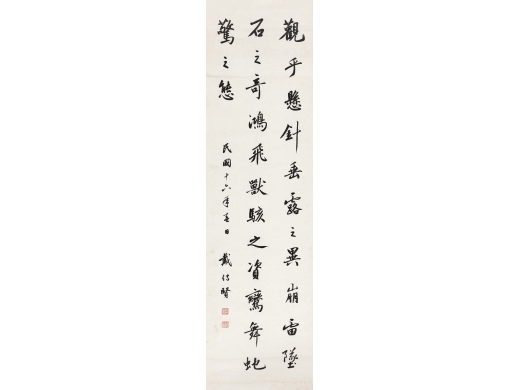 觀乎懸針垂露之異崩雷墜
石之奇鴻飛獸駭之資鸞舞蛇
驚之態
民國十六年春日 戴傳賢